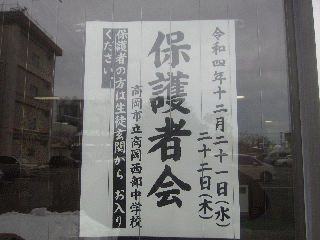 令和四年十二月二十一日(水)
二十二日(木)
保護者会
高岡市立高岡西部中学校
保護者の方は生徒玄関から お入り
ください。